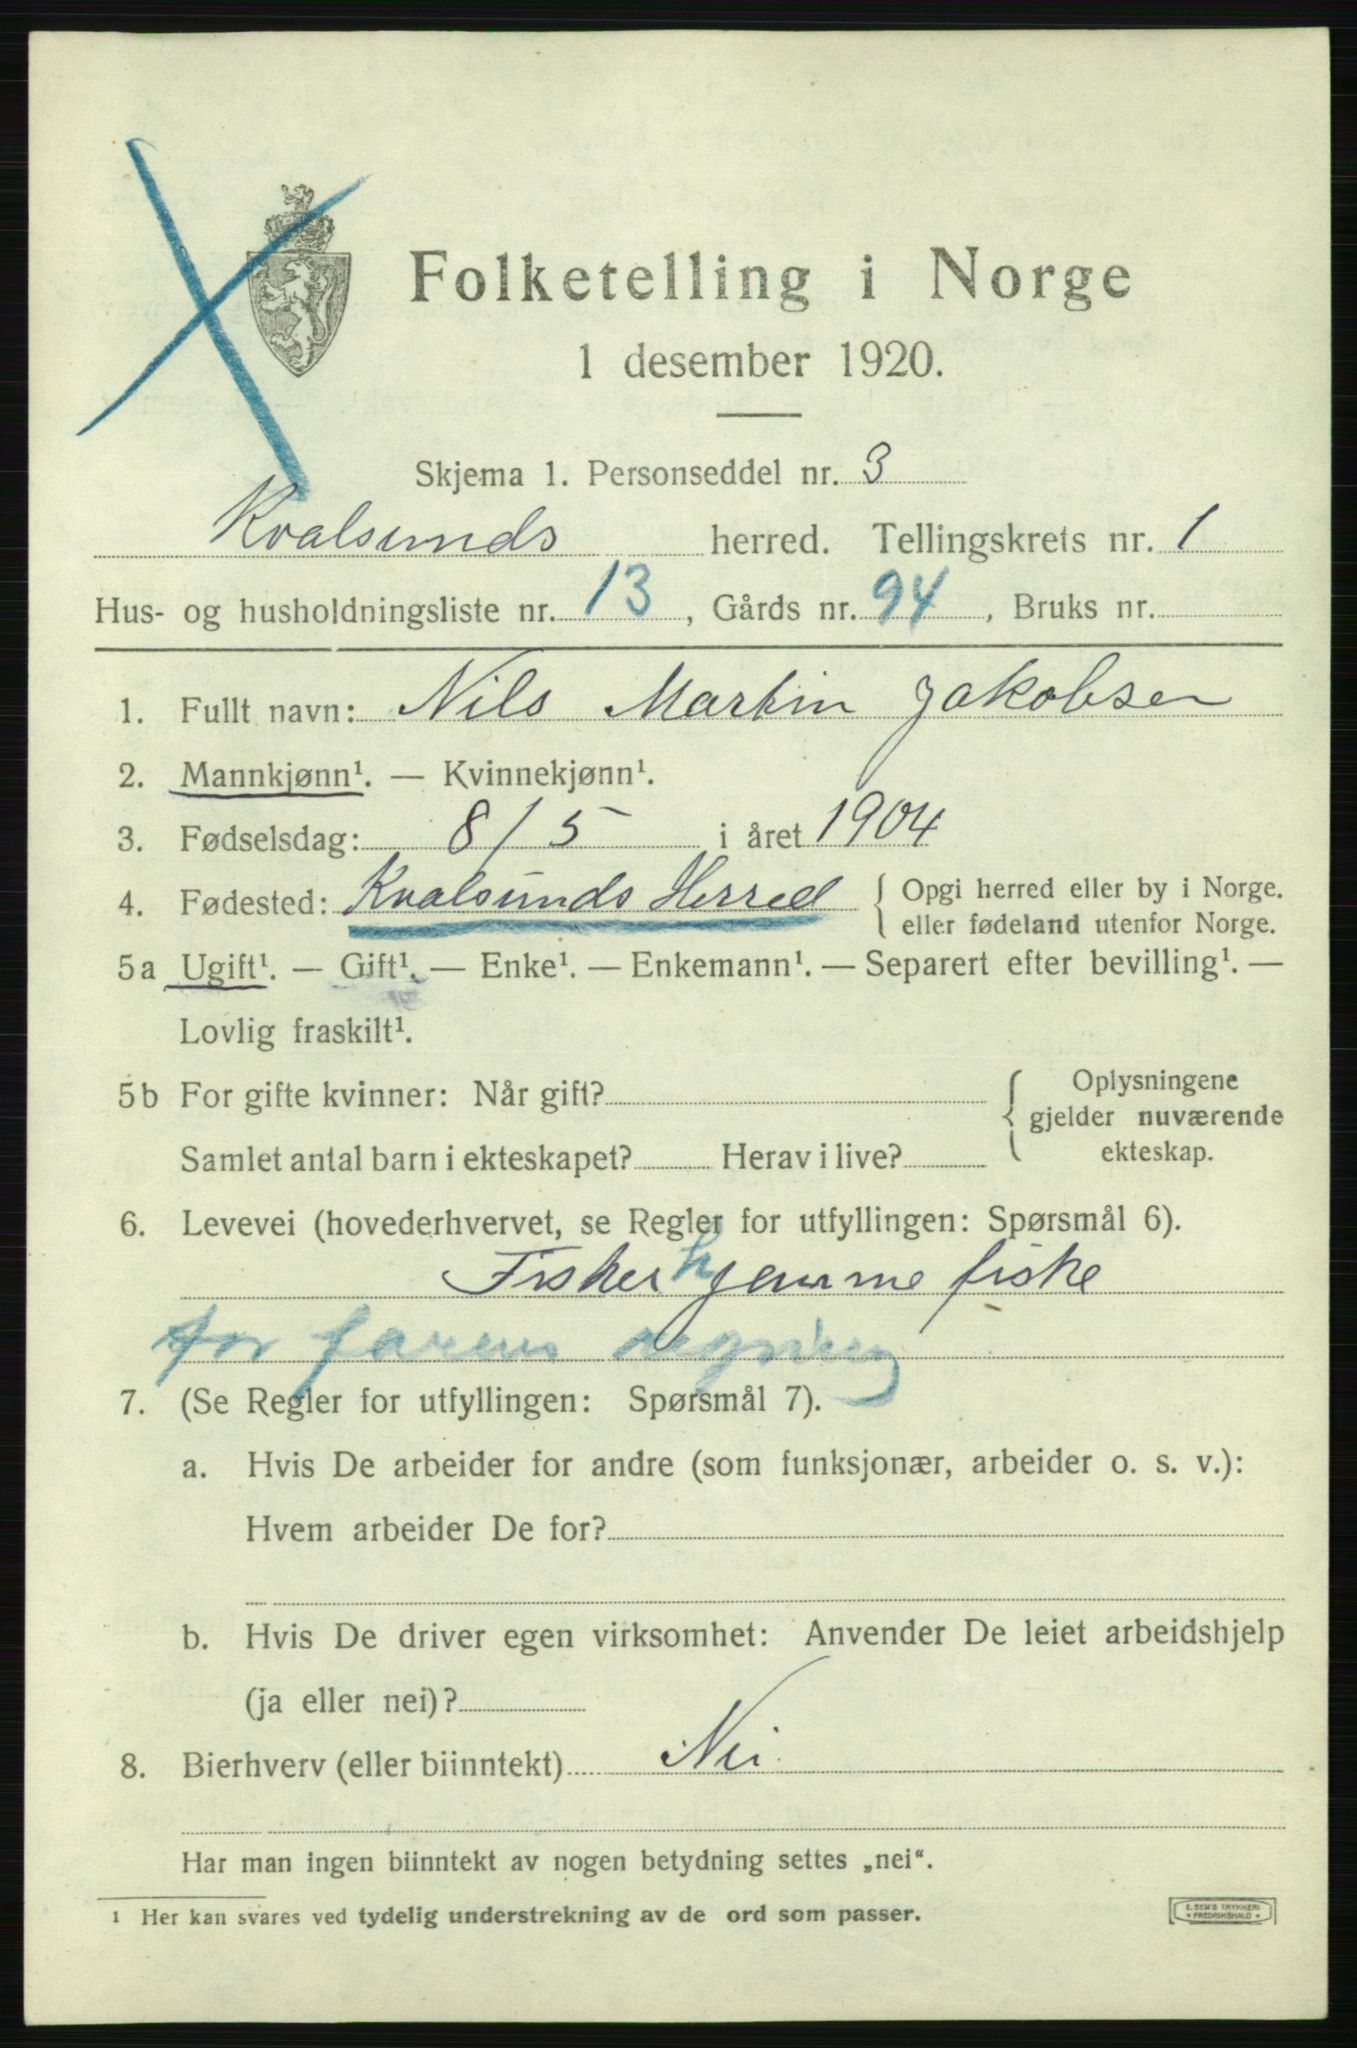 Folketelling i Norge
1 desember 1920.
Skjema 1. Personseddel nr. 3
Kvalsunds herred. Tellingskrets nr. 1
Hus- og husholdningsliste nr. 13, Gårds nr. 94, Bruks nr.
1. Fullt navn: Nils Martin Jakobsen
2. Mannkjønn¹. — Kvinnekjønn¹.
3. Fødselsdag: 8/5 i året 1904
4. Fødested: Kvalsunds Herred { Opgi herred eller by i Norge.
eller fødeland utenfor Norge.
5a Ugift¹. — Gift¹. — Enke¹. — Enkemann¹. — Separert efter bevilling¹. —
Lovlig fraskilt¹.
5b For gifte kvinner: Når gift? { Oplysningene
gjelder nuværende
ekteskap.
Samlet antal barn i ekteskapet? Herav i live?
6. Levevei (hovederhvervet, se Regler for utfyllingen: Spørsmål 6).
Fisker hjemmefiske
for farens regning
7. (Se Regler for utfyllingen: Spørsmål 7).
a. Hvis De arbeider for andre (som funksjonær, arbeider o. s. v.):
Hvem arbeider De for?
b. Hvis De driver egen virksomhet: Anvender De leiet arbeidshjelp
(ja eller nei)?
8. Bierhverv (eller biinntekt) Nei
Har man ingen biinntekt av nogen betydning settes „nei“.
1 Her kan svares ved tydelig understrekning av de ord som passer.
E. SEM'S TRYKKERI
• FREDRIKSHALD •